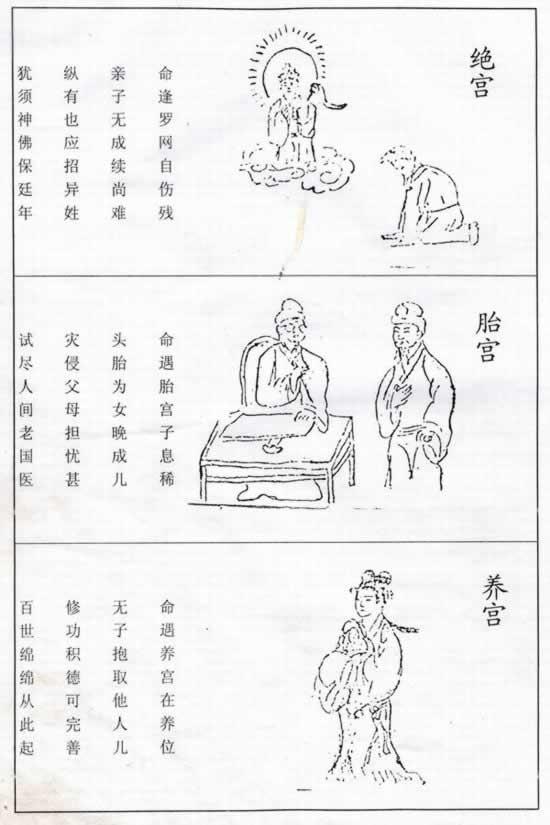 绝宫
命逢罗网自伤残
亲子无成续尚难
纵有也应招异姓
犹须神佛保廷年
胎宫
命遇胎宫子息稀
头胎为女晚成儿
灾侵父母担忧甚
试尽人间老国医
养宫
命遇养宫在养位
无子抱取他人儿
修功积德可完善
百世绵绵从此起